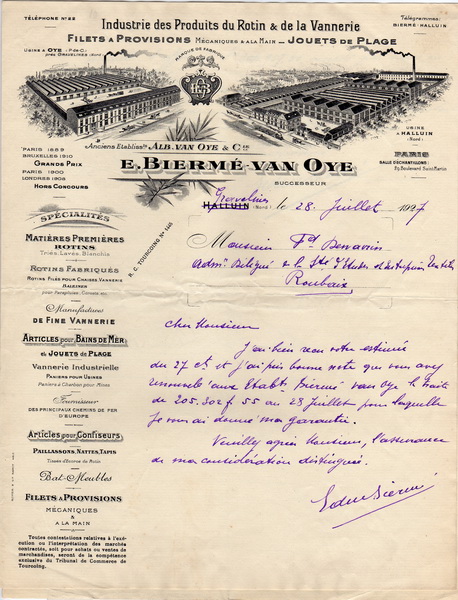 TÉLÉPHONE Nº 22
Industrie des Produits du Rotin & de la Vannerie
Télégrammes:
BIERMÉ-HALLUIN
FILETS A PROVISIONS MÉCANIQUES & A LA MAIN — JOUETS DE PLAGE
USINE A OYE (P. de C.)
près GRAVELINES (Nord)
MARQUE DE FABRIQUE
USINE
A HALLUIN
(Nord)
Anciens Etablissts ALB. VAN OYE & Cie
E. BIERMÉ-VAN OYE
SUCCESSEUR
PARIS 1889
BRUXELLES 1910
GRANDS PRIX
PARIS 1900
LONDRES 1908
HORS CONCOURS
PARIS
SALLE D'ÉCHANTILLONS:
Boulevard Saint-Martin
R. C. TOURCOING Nº
Gravelines
HALLUIN (Nord) le 28 Juillet 1927
Monsieur
Roubaix
SPÉCIALITÉS
MATIÈRES PREMIÈRES
ROTINS
Triés, Lavés, Blanchis
ROTINS FABRIQUÉS
ROTINS FILÉS POUR CHAISES, VANNERIE
BALEINES
pour Parapluies, Corsets, etc.
Manufacture
DE FINE VANNERIE
ARTICLES pour BAINS DE MER
et JOUETS DE PLAGE
Vannerie Industrielle
PANIERS POUR USINES
Paniers à Charbon pour Mines
Fournisseur
DES PRINCIPAUX CHEMINS DE FER
D'EUROPE
Articles pour Confiseurs
PAILLASSONS, NATTES, TAPIS
Tissés d'Écorce de Rotin
Bat-Meubles
FILETS A PROVISIONS
MÉCANIQUES
&
A LA MAIN
Toutes contestations relatives à l'exé-
cution ou l'interprétation des marchés
contractés, soit pour achats ou ventes de
marchandises, seront de la compétence
exclusive du Tribunal de Commerce de
Tourcoing.
Cher Monsieur
J'ai bien reçu votre estimée
du 27 ct et j'ai pris bonne note que vous avez
renouvelé aux Etabts Biermé van Oye le traite
de 205.302 f 55 au 28 Juillet pour laquelle
je vous ai donné ma garantie.
Veuillez agréer Monsieur, l'assurance
de ma considération distinguée.